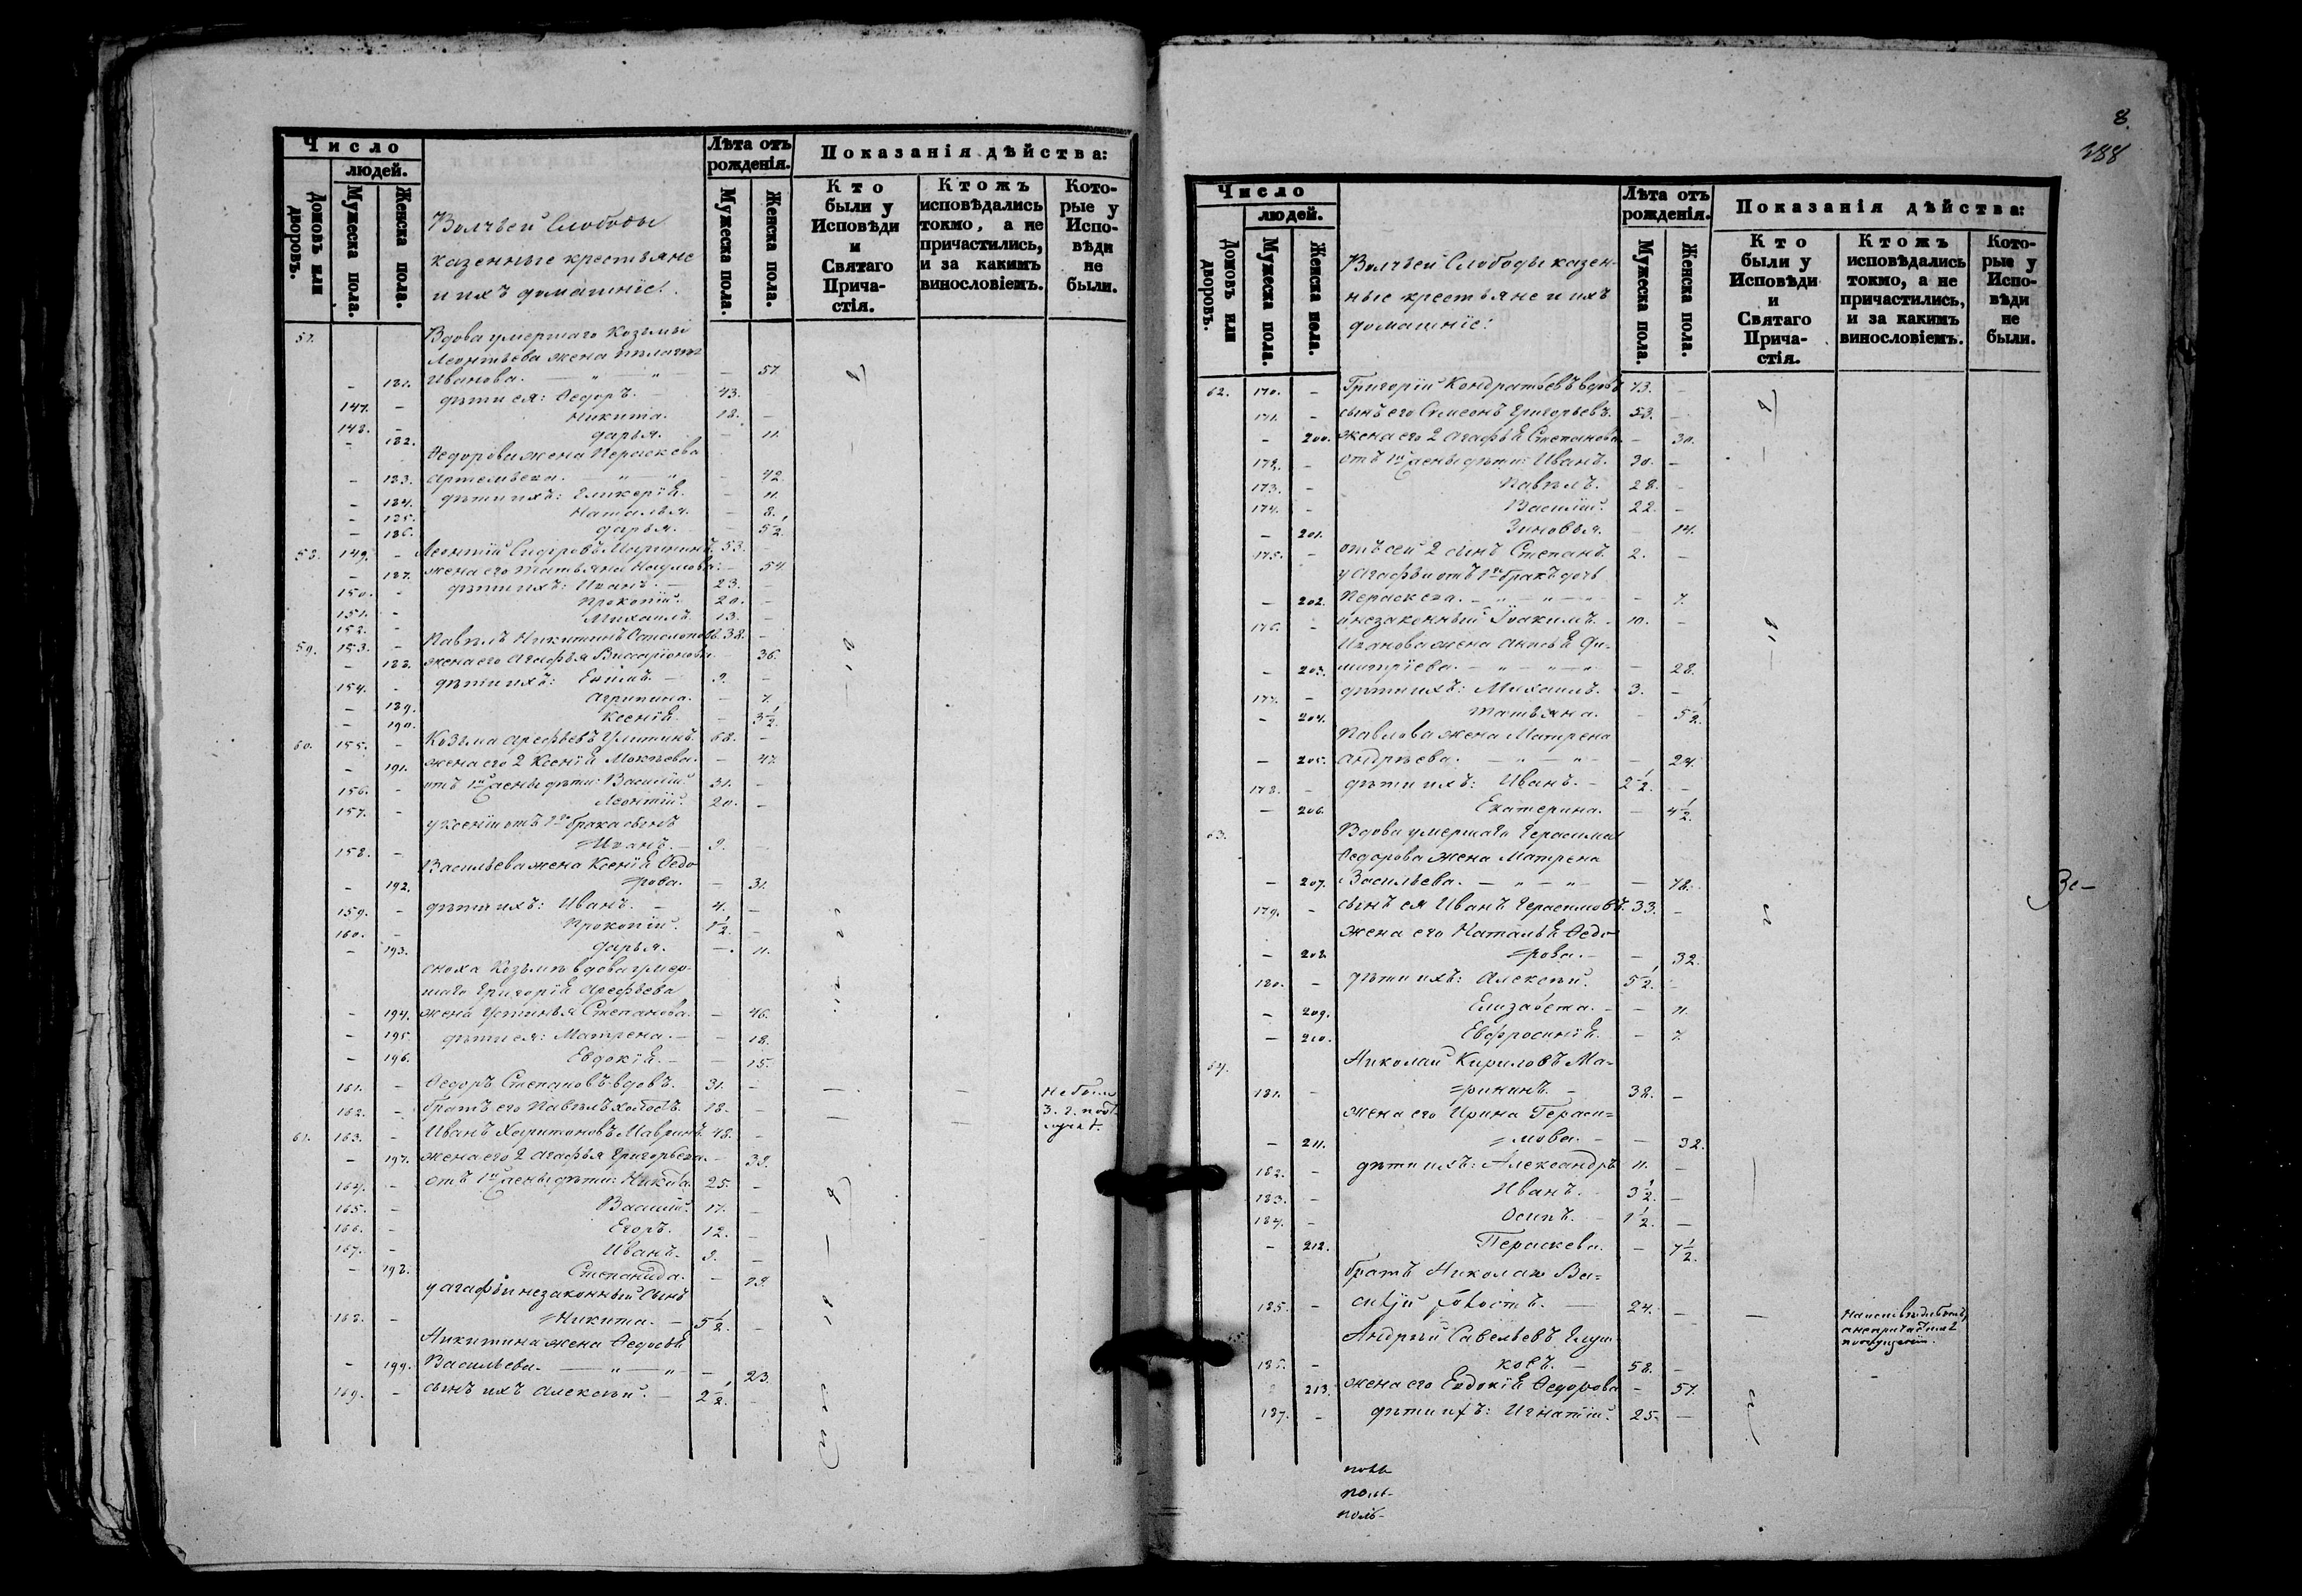 Число
людей.
Домовъ или дворовъ.
Мужеска пола.
Женска пола.
Волчьей Слободы
казенные крестьяне
и ихъ домашніе:
Лѣта отъ рожденія.
Мужеска пола.
Женска пола.
Показанія дѣйства:
Кто были у Исповѣди и Святаго Прича-стія.
Ктожъ исповѣдались токмо, а не причастились, и за какимъ винословіемъ.
Кото-рые у Испо-вѣди не были.
57. Вдова умершаго Козьмы
Леонтьева жена Пелагея
- 181. Иванова. — " — " — - 57.
147. - дѣти ея: Ѳедоръ. - 43. -
148. - Никита. 18. -
- 182. Дарья. - 11.
Ѳедорова жена Пераскева
- 183. Артемьева. — " — " - 42.
- 184. дѣти ихъ: Гликерія. - 11.
- 185. Наталья. - 8.
- 186. Дарья. - 5 1/2.
58. 149. - Леонтій Сидоровъ 53. -
- 187. жена его Татьяна Наумова. - 54
150. - дѣти ихъ: Иванъ. - 23. -
151. - Прокопій. 20. -
152. - Михаилъ. 13. -
59. 153. - Павелъ Никитинъ 38. -
- 188. жена его Агафья - 36.
154. - дѣти ихъ: Ефимъ. - 9. -
- 189. Агрипина. - 7.
- 190. Ксенія. - 3 1/2.
60. 155. - Козьма Арефьевъ Улитинъ. 68. -
- 191. жена его 2 Ксенія Мокеева. - 47.
156. - отъ 1й жены дѣти: Василій. 31. -
157. - Леонтій. 20. -
у Ксеніи отъ 1го брака сынъ
158. - Иванъ. - 9. -
Васильева жена Ксенія Ѳедо
- 192. =рова. - 31.
159. - дѣти ихъ: Иванъ. - 4. -
160. - Прокопій. 1 1/2. -
- 193. Дарья. - 11.
сноха Козьмы вдова умер-
шаго Григорія Арефьева
- 194. жена Устинья Степанова. - 46.
- 195. дѣти ея: Матрена. - - 18.
- 196. Евдокія. - - 15.
161. - Ѳедоръ Степановъ вдовъ. 31. - — - не были
162. - братъ его Павелъ холостъ. 18. - —
61. 163. - Иванъ Харитоновъ Мавринъ. 48. -
- 197. жена его 2 Агафья Григорьева. - 39.
164. - отъ 1й жены дѣти: Никита. 25. -
165. - Василій. 17. -
166. - Егоръ. 12. -
167. - Иванъ. 9. -
- 198. Степанида. -
у Агафьи незаконный сынъ
168. - =Никита. - 5 1/2. -
Никитина жена Ѳедосья
- 199. Васильева. — " — " - - 23.
169. - сынъ ихъ Алексѣй. - 2 1/2. -
8.
388
Число
людей.
Домовъ или дворовъ.
Мужеска пола.
Женска пола.
Волчьей Слободы казен-
ные крестьяне и ихъ
домашніе:
Лѣта отъ рожденія.
Мужеска пола.
Женска пола.
Показанія дѣйства:
Кто были у Исповѣди и Святаго Прича-стія.
Ктожъ исповѣдались токмо, а не причастились, и за какимъ винословіемъ.
Кото-рые у Испо-вѣди не были.
62. 170. - Григорій Кондратьевъ вдовъ 73. -
171. - сынъ его Симеонъ Григорьевъ. 53. -
- 200. жена его 2 Агафья Степанова - 30.
172. - отъ 1й жены дѣти: Иванъ. 30. -
173. - Павелъ. 28. -
174. - Василій. 22. -
- 201. Зиновья. - 14.
175. - отъ сей 2 сынъ Степанъ. 2. -
у Агафьи отъ 1го бракъ дочь
- 202. Пераскева. — " — " - - 7.
176. - и незаконный Іоакимъ. - 10. -
Иванова жена Анисья Ди-
- 203. митріева. — " — " - - 28.
177. - дѣти ихъ: Михаилъ. 3. -
- 204. Татьяна. - 5 1/2.
Павлова жена Матрена
- 205. Андреева. — " — " - - 24.
178. - дѣти ихъ: Иванъ. - 2 1/2. -
- 206. Екатерина. - 4 1/2.
63. Вдова умершаго Герасима
Ѳедорова жена Матрена
- 207. Васильева. — " — " - - 78.
179. - сынъ ея Иванъ Герасимовъ. 33. -
жена его Наталья Ѳедо
- 208. =рова. - - 32.
180. - дѣти ихъ: Алексѣй. 5 1/2. -
- 209. Елизавета. - - 11.
- 210. Евфросинія. - 7.
64. Николай Кириловъ Ма-
181. - =рининъ. - 38. -
жена его Ирина Гераси=
- 211. =мова. - - 32.
182. - дѣти ихъ: Александръ 11. -
183. - Иванъ. 3 1/2. -
184. - Осипъ. - 1 1/2. -
- 212. Пераскева. - 7 1/2.
братъ Николая Ва=
185. - силій холостъ. — 24. - —
Андрей Савельевъ
186. - ковъ. - 58. -
213. жена его Евдокія Ѳедорова - 57.
187. - дѣти ихъ: Игнатій. 25. -